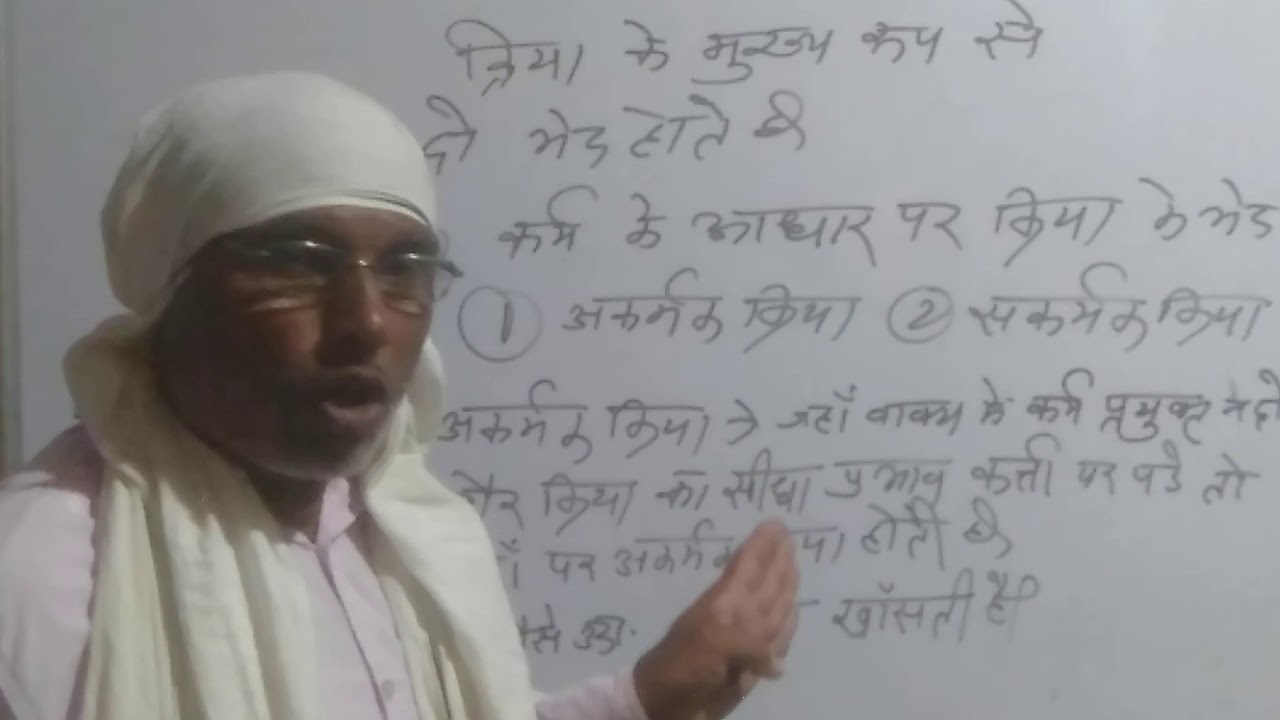 क्रिया के मुख्य रूप से
दो भेद होते है
कर्म के आधार पर क्रिया के भेद
① अकर्मक क्रिया ② सकर्मक क्रिया
अकर्मक क्रिया → जहाँ वाक्य में कर्म प्रयुक्त न हो
और क्रिया का सीधा प्रभाव कर्त्ता पर पडे तो
पर अकर्मक होती है
खाँसती है